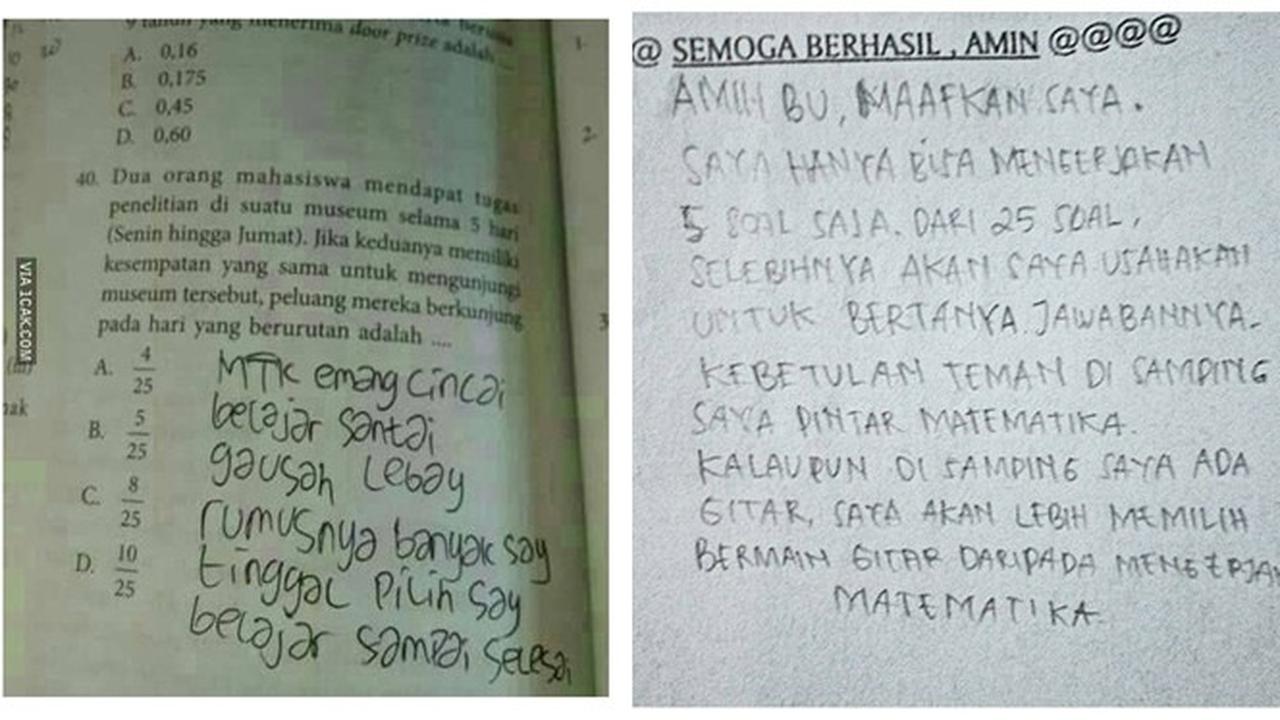 9 tahun yang menerima door prize adalah ....
A. 0,16
B. 0,175
C. 0,45
D. 0,60
40. Dua orang mahasiswa mendapat tugas
penelitian di suatu museum selama 5 hari
(Senin hingga Jumat). Jika keduanya memiliki
kesempatan yang sama untuk mengunjungi
museum tersebut, peluang mereka berkunjung
pada hari yang berurutan adalah ....
A. 4/25
B. 5/25
C. 8/25
D. 10/25
MTK emang cincai
belajar santai
gausah lebay
rumusnya banyak say
tinggal pilih say
belajar sampai selesai
VIA 1CAK.COM
1.
2.
3
nak
@ SEMOGA BERHASIL , AMIN @@@@
AMIN BU, MAAFKAN SAYA.
SAYA HANYA BISA MENGERJAKAN
5 SOAL SAJA. DARI 25 SOAL,
SELEBIHNYA AKAN SAYA USAHAKAN
UNTUK BERTANYA JAWABANNYA.
KEBETULAN TEMAN DI SAMPING
SAYA PINTAR MATEMATIKA.
KALAUPUN DI SAMPING SAYA ADA
GITAR, SAYA AKAN LEBIH MEMILIH
BERMAIN GITAR DARIPADA MENGERJA
MATEMATIKA